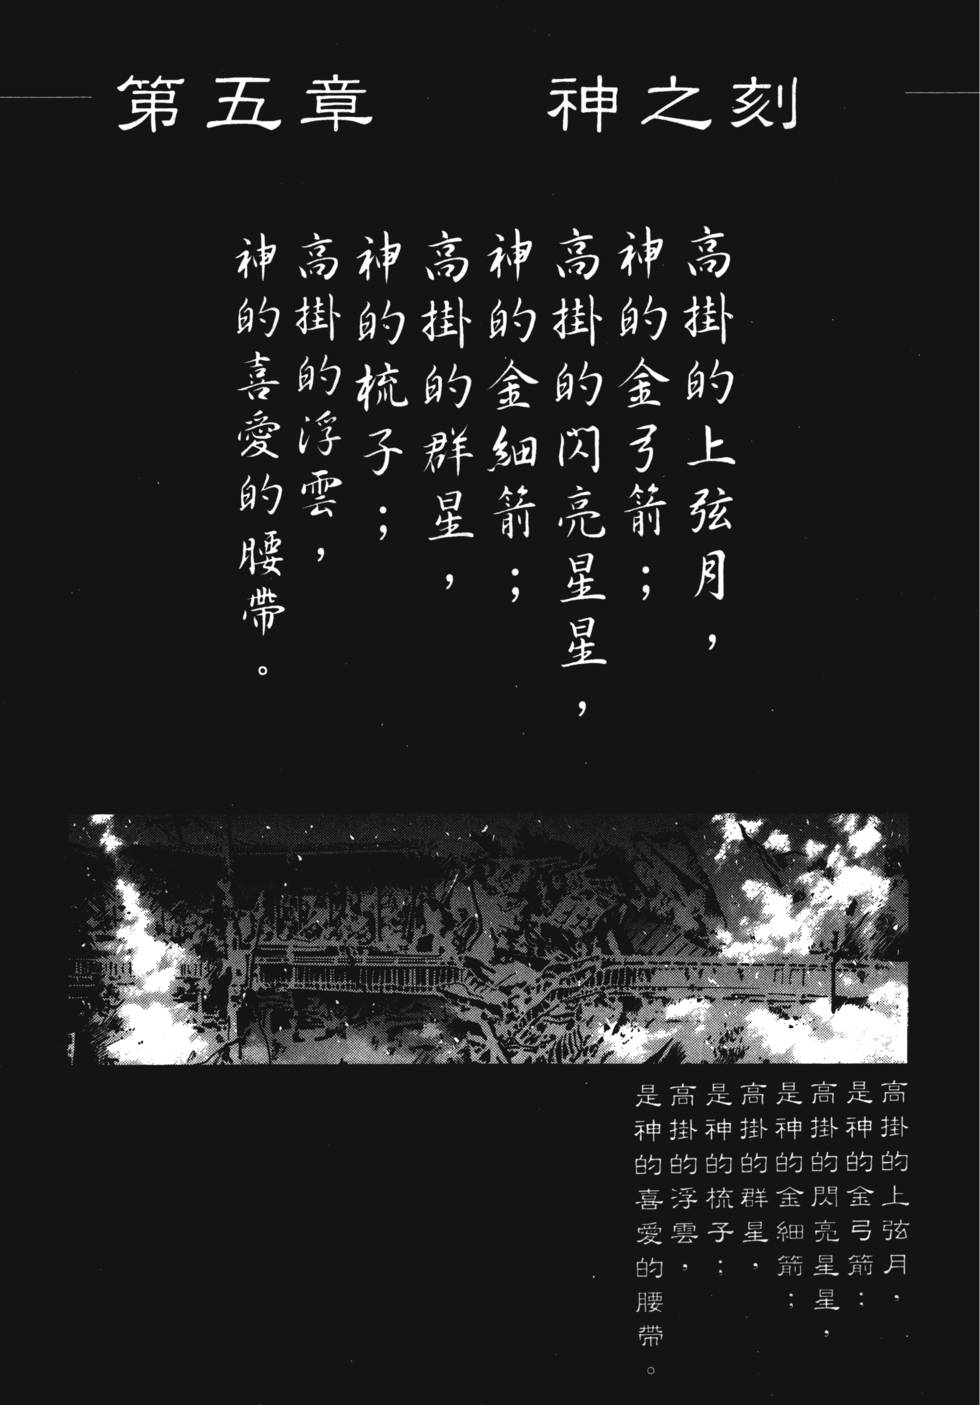 第五章　神之刻
高掛的上弦月，
神的金弓箭；
高掛的閃亮星星，
神的金細箭；
高掛的群星，
神的梳子；
高掛的浮雲，
神的喜愛的腰帶。
高掛的上弦月，
是神的金弓箭；
高掛的閃亮星星，
是神的金細箭；
高掛的群星，
是神的梳子；
高掛的浮雲，
是神的喜愛的腰帶。